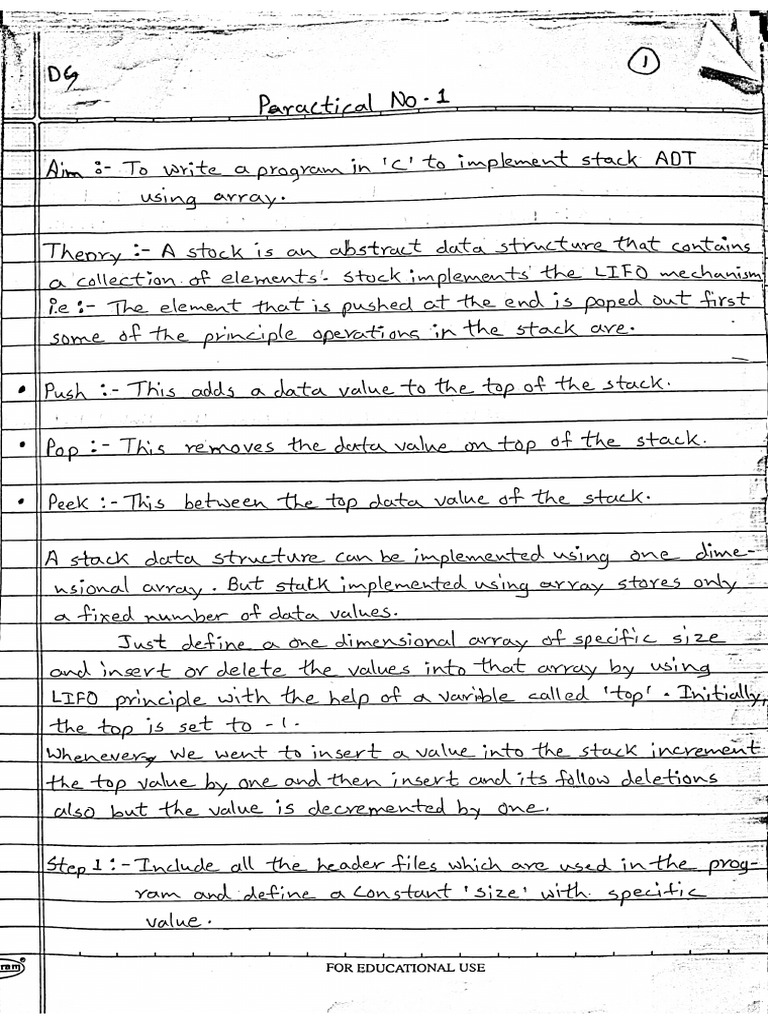 DG
1
Paractical No. 1
Aim :- To write a program in 'C' to implement stack ADT
using array.
Theory :- A stock is an abstract data structure that contains
a collection of elements. stock implements the LIFO mechanism
i.e :- The element that is pushed at the end is poped out first
some of the principle operations in the stack are.
• Push :- This adds a data value to the top of the stack.
• Pop :- This removes the data value on top of the stack.
• Peek :- This between the top data value of the stack.
A stack data structure can be implemented using one dime-
nsional array. But statk implemented using array stores only
a fixed number of data values.
Just define a one dimensional array of specific size
and insert or delete the values into that array by using
LIFO principle with the help of a varible called 'top'. Initially,
the top is set to -1.
Whenever, we went to insert a value into the stack increment
the top value by one and then insert and its follow deletions
also but the value is decremented by one.
Step 1 :- Include all the header files which are used in the prog-
ram and define a constant 'size' with specific
value.
ram
FOR EDUCATIONAL USE